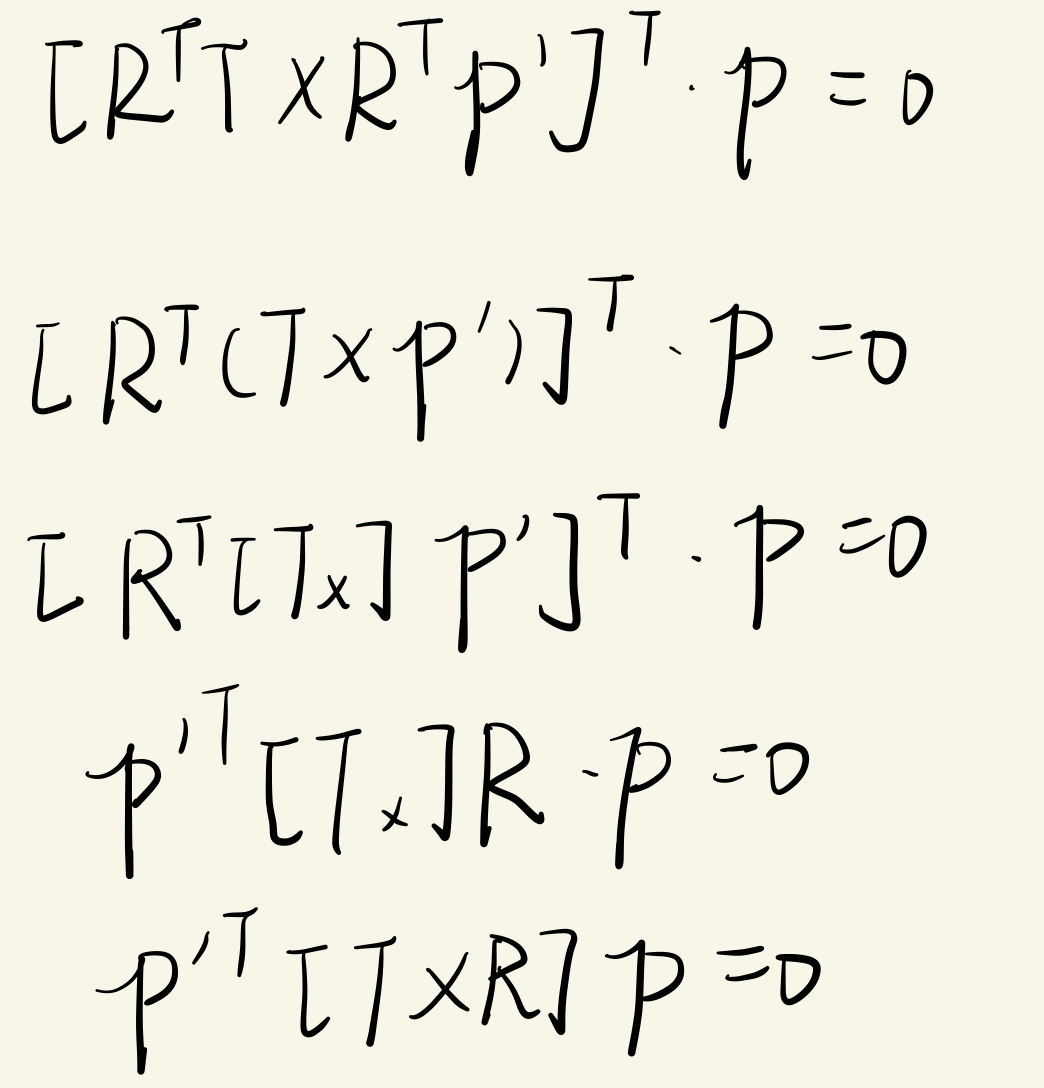 [RᵀT × Rᵀp']ᵀ · p = 0
[Rᵀ(T × p')]ᵀ · p = 0
[Rᵀ[Tₓ] p']ᵀ · p = 0
p'ᵀ [Tₓ]R · p = 0
p'ᵀ [T × R] p = 0